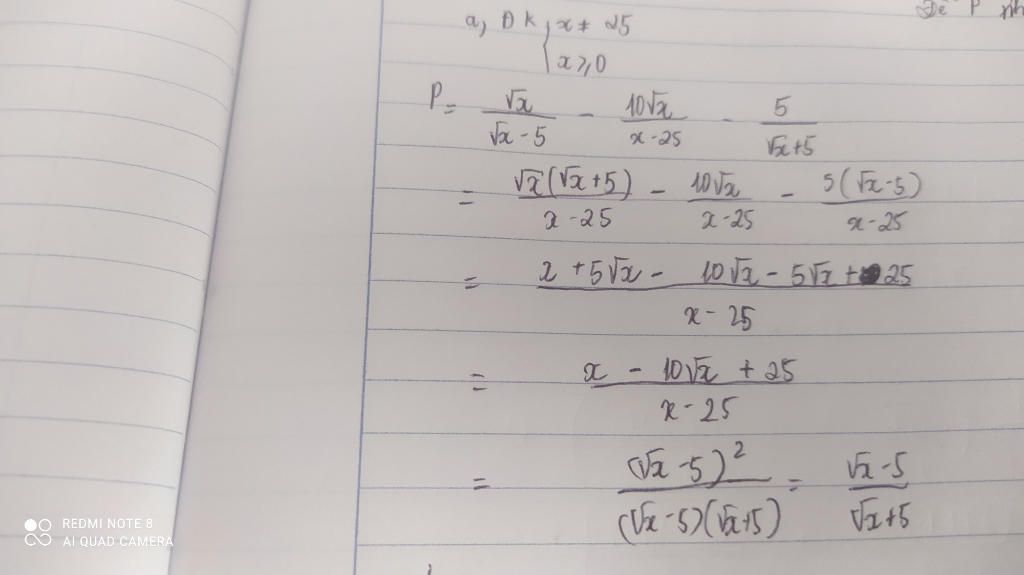 Để P nh
a, ĐK { x ≠ 25
x ⩾ 0
P = √x/(√x - 5) - 10√x/(x - 25) - 5/(√x + 5)
= √x(√x + 5)/(x - 25) - 10√x/(x - 25) - 5(√x - 5)/(x - 25)
= (x + 5√x - 10√x - 5√x + 25)/(x - 25)
= (x - 10√x + 25)/(x - 25)
= (√x - 5)²/((√x - 5)(√x + 5)) = (√x - 5)/(√x + 5)
REDMI NOTE 8
AI QUAD CAMERA